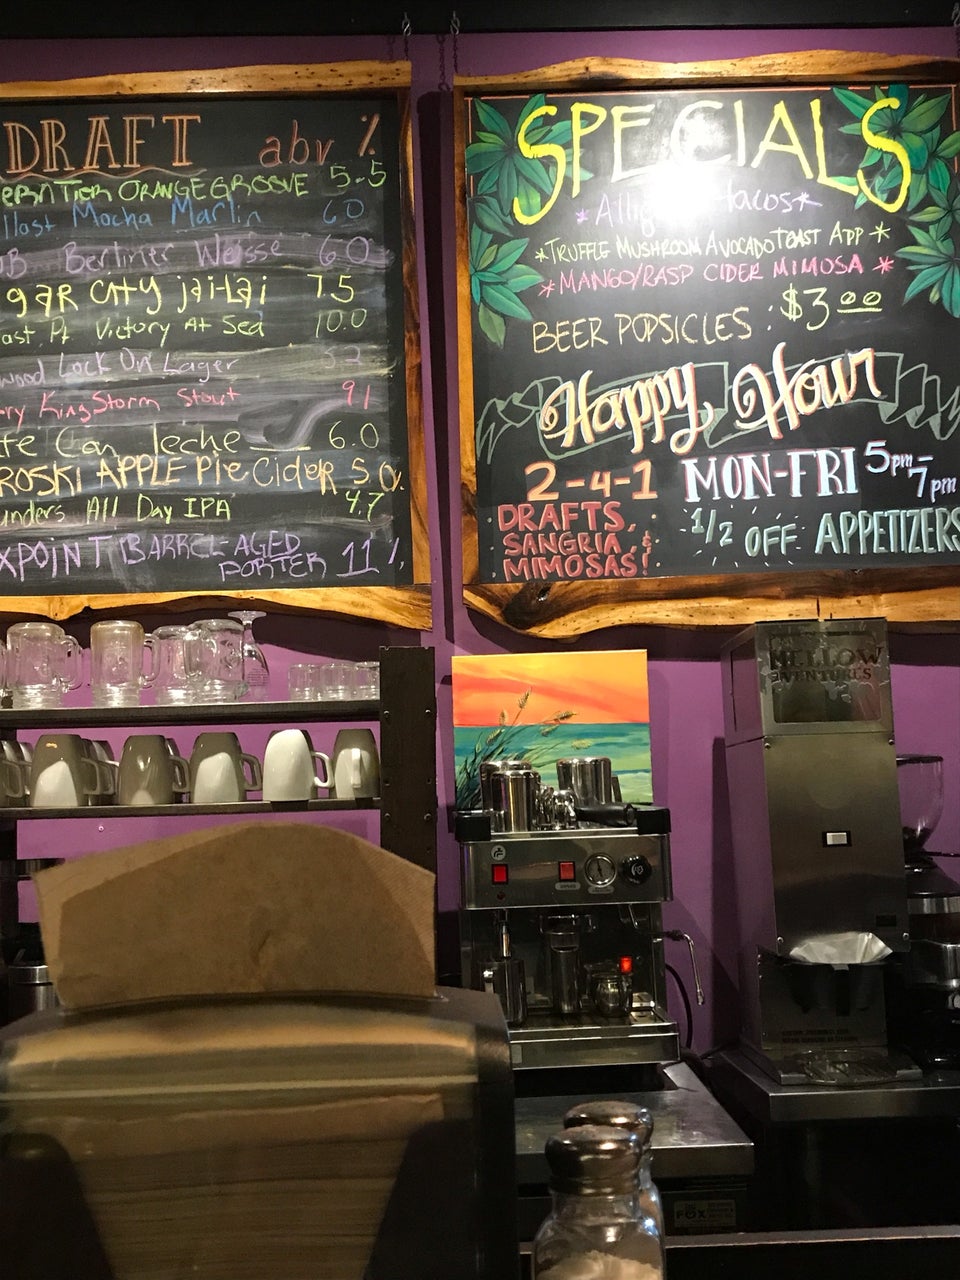 DRAFT abv %
ORANGE GROOVE 5.5
Mocha Marlin 6.0
Berliner Weisse 6.0
gar City jai-Lai 7.5
ast Pt. Victory At Sea 10.0
wood Lock On Lager 5.2
ry King Storm Stout 9.1
te Con leche 6.0
ROSKI APPLE PIE CIDER 5.0%
unders All Day IPA 4.7
XPOINT BARREL-AGED
PORTER 11%
SPECIALS
*Tacos*
*TRUFFLE MUSHROOM AVOCADO TOAST APP*
*MANGO/RASP CIDER MIMOSA*
BEER POPSICLES . $3 00
Happy Hour
2-4-1 MON-FRI 5pm-7pm
DRAFTS,
SANGRIA, &
MIMOSAS!
1/2 OFF APPETIZERS
MELLOW
VENTURES
FOX